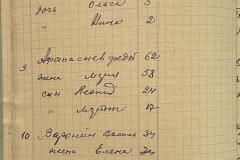 дочь Ольга 5
" Нина 2
9. Афанасьев Федот 62
жена Мария 58
сын Леонид 24
" 17
10 Василь 34
жена Елена 34